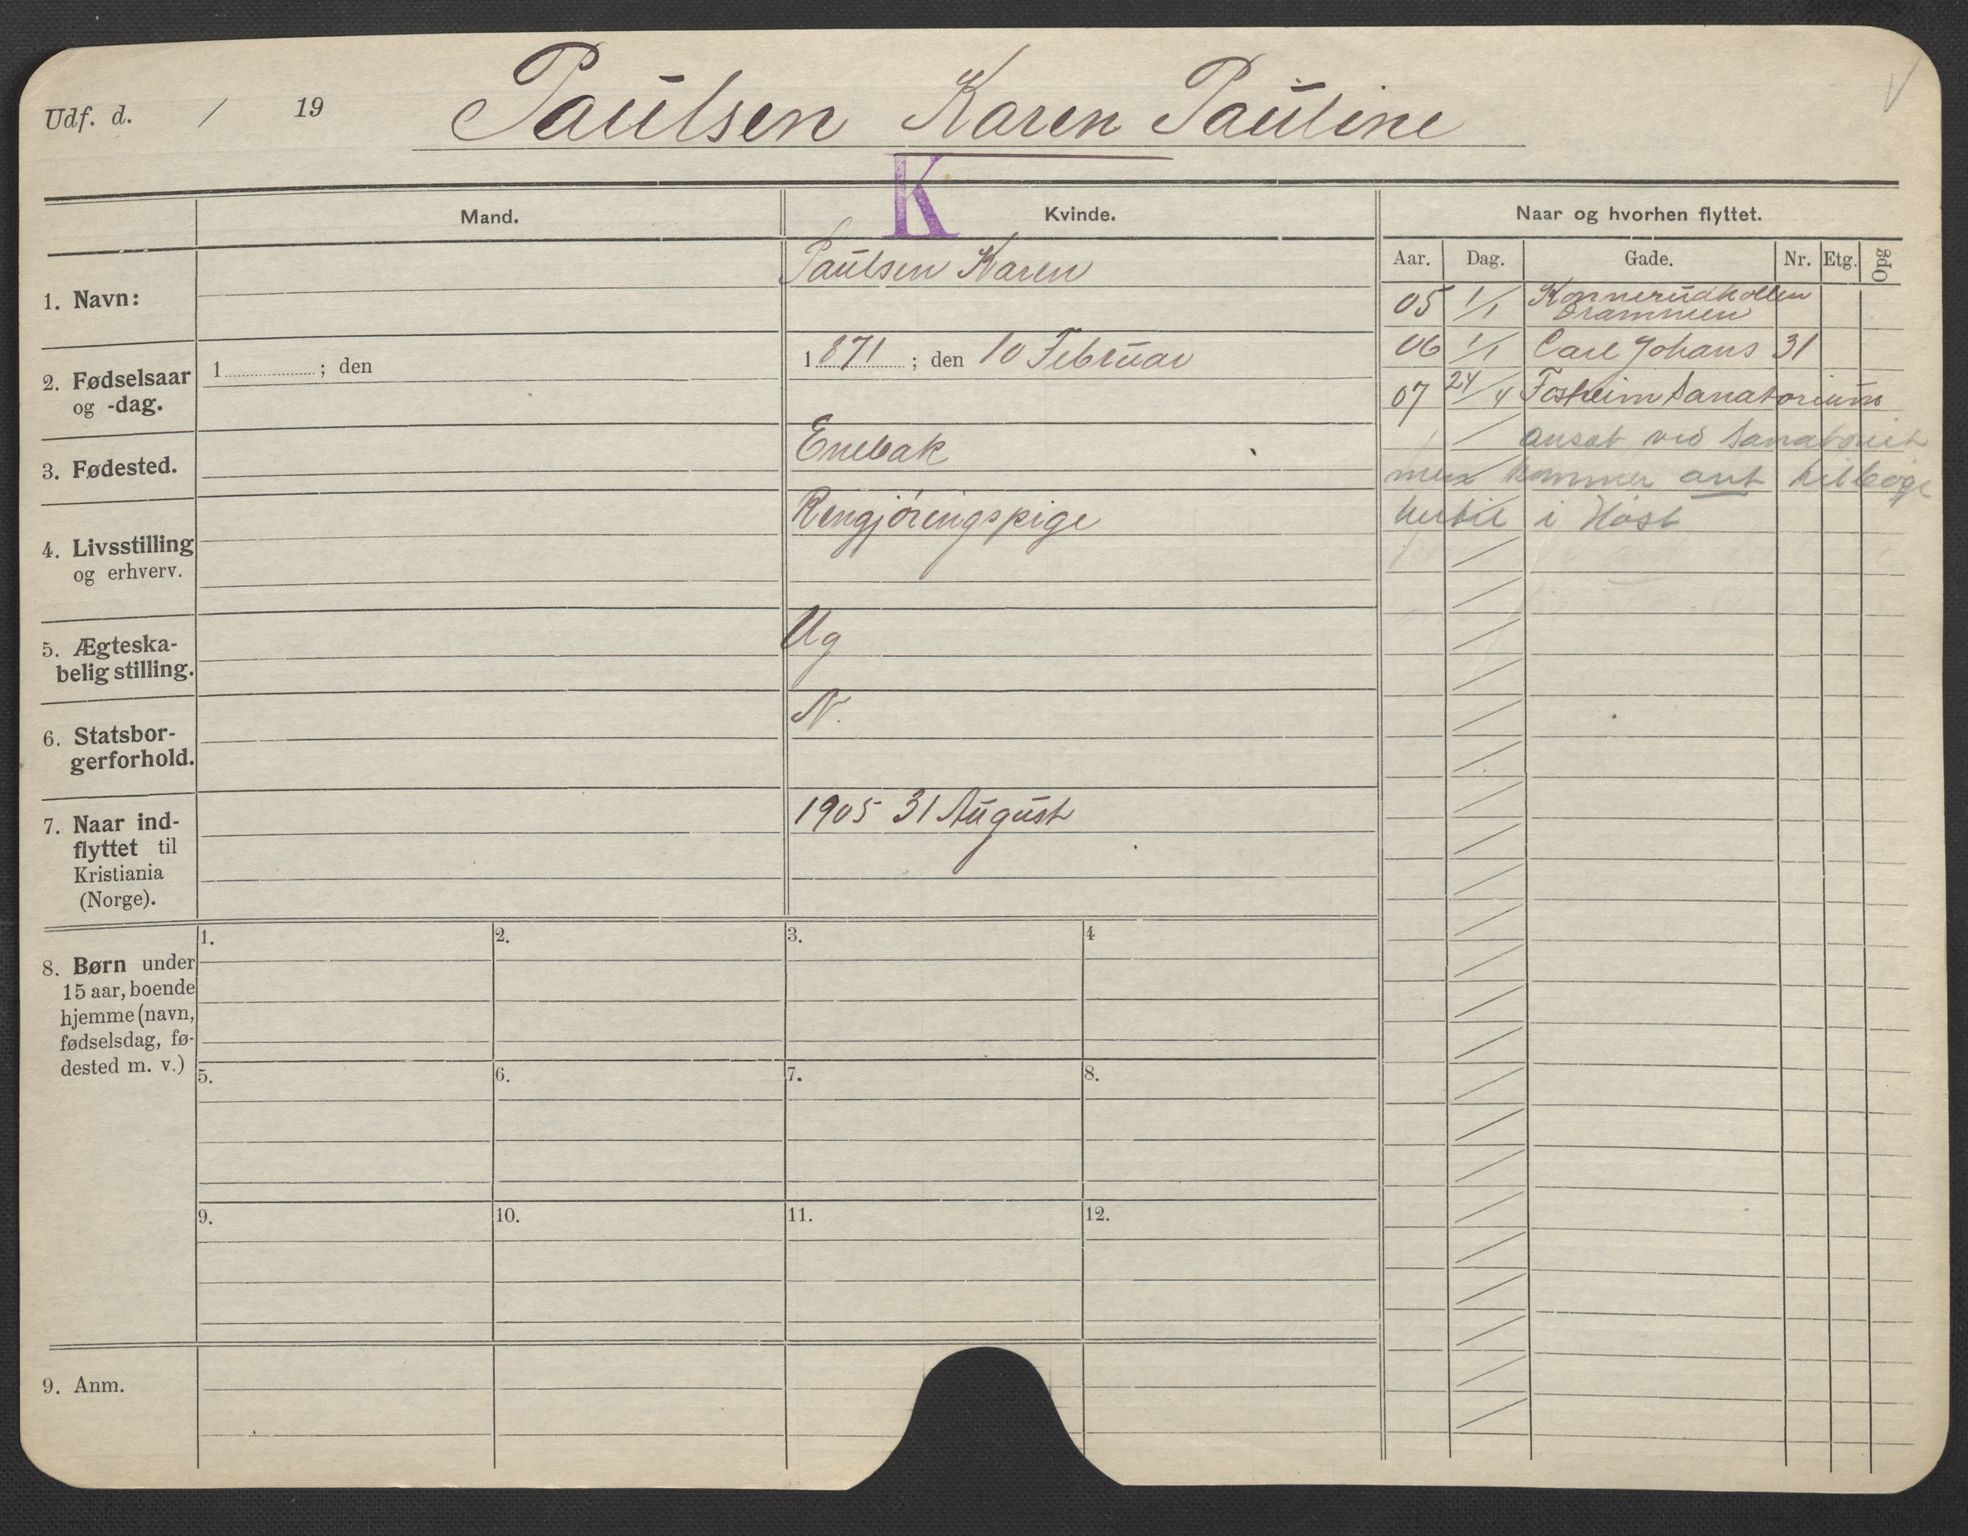 Udf. d. / 19
Paulsen Karen Pauline
K
Mand.
Kvinde.
Naar og hvorhen flyttet.
Aar. Dag. Gade. Nr. Etg. Opg
1. Navn:
Paulsen Karen
2. Fødselsaar
og -dag.
1 ; den
1871 ; den 10 Februar
3. Fødested.
Enebak
4. Livsstilling
og erhverv.
Rengjøringspige
5. Ægteska-
belig stilling.
Ug
6. Statsbor-
gerforhold.
N.
7. Naar ind-
flyttet til
Kristiania
(Norge).
1905 31 August
05 1/1 Konnerudkollen
Drammen
06 1/1 Carl Johans 31
07 24/4 Fosheim Sanatorium
ansat ved Sanatoriet
men kommer ant tilbage
hertil i Høst
8. Børn under
15 aar, boende
hjemme (navn,
fødselsdag, fø-
dested m. v.)
1. 2. 3. 4
5. 6. 7. 8.
9. 10. 11. 12.
9. Anm.